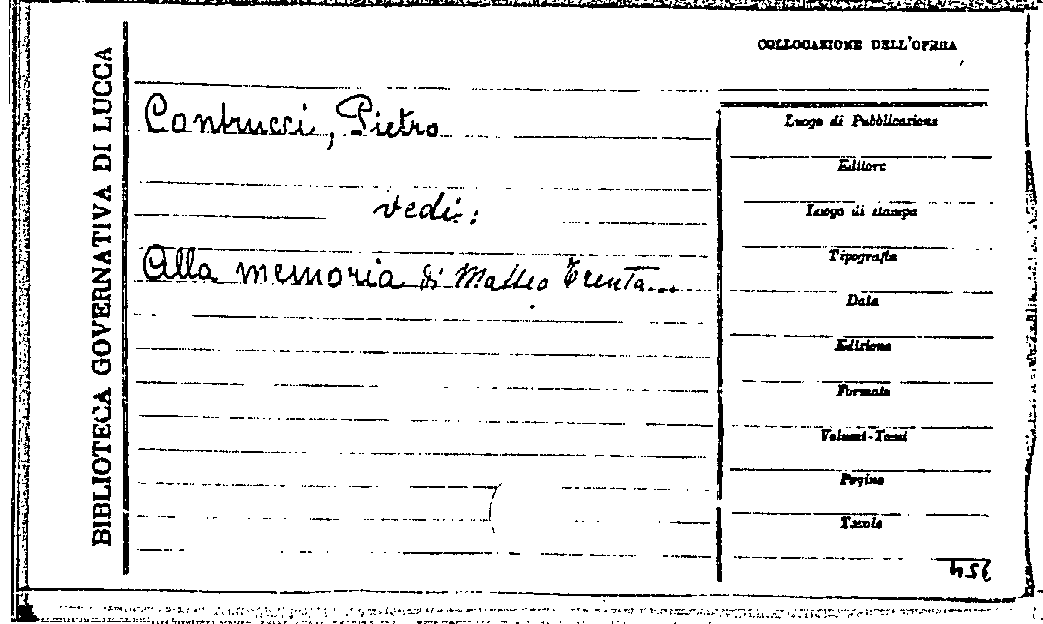 BIBLIOTECA GOVERNATIVA DI LUCCA
COLLOCAZIONE DELL'OPERA
Contrucci, Pietro
vedi:
Alla memoria di Matteo Trenta...
Luogo di Pubblicazione
Editore
Luogo di stampa
Tipografia
Data
Edizione
Formato
Volumi-Tomi
Pagine
Tavole
354